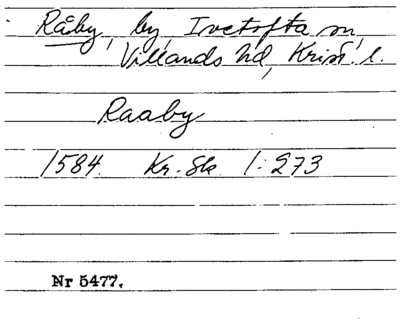 Råby, by, Ivetofta sn,
Villands hd, Krist. l.
Raaby
1584. Kr. Sk. 1:273
Nr 5477.